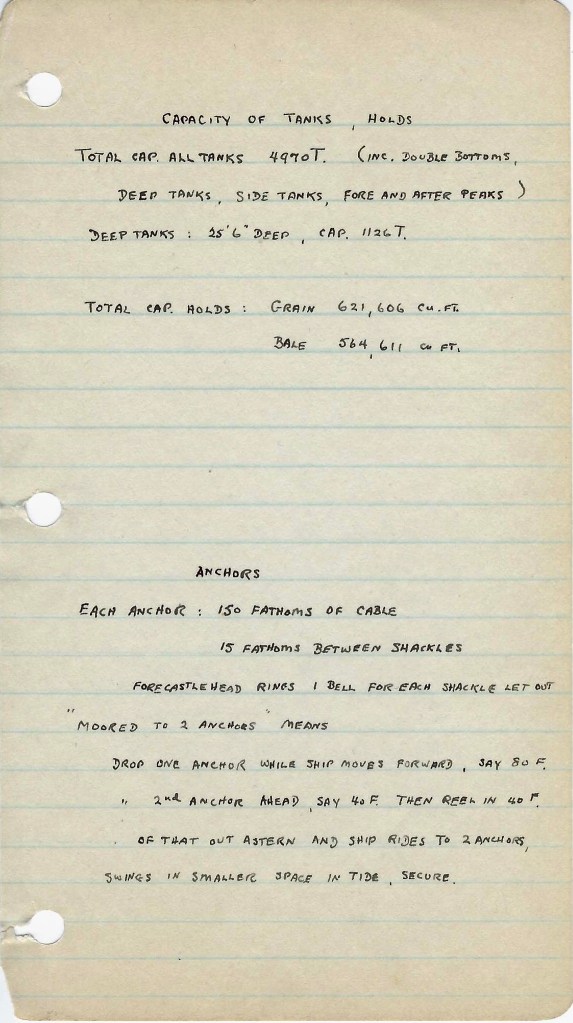 CAPACITY OF TANKS, HOLDS
TOTAL CAP. ALL TANKS 4970T. (INC. DOUBLE BOTTOMS,
DEEP TANKS, SIDE TANKS, FORE AND AFTER PEAKS)
DEEP TANKS : 25'6" DEEP, CAP. 1126 T.
TOTAL CAP. HOLDS : GRAIN 621,606 CU. FT.
BALE 564,611 CU FT.
ANCHORS
EACH ANCHOR : 150 FATHOMS OF CABLE
15 FATHOMS BETWEEN SHACKLES
FORECASTLEHEAD RINGS 1 BELL FOR EACH SHACKLE LET OUT
"MOORED TO 2 ANCHORS" MEANS
DROP ONE ANCHOR WHILE SHIP MOVES FORWARD, SAY 80 F.
" 2nd ANCHOR AHEAD, SAY 40 F. THEN REEL IN 40 F.
OF THAT OUT ASTERN AND SHIP RIDES TO 2 ANCHORS,
SWINGS IN SMALLER SPACE IN TIDE, SECURE.